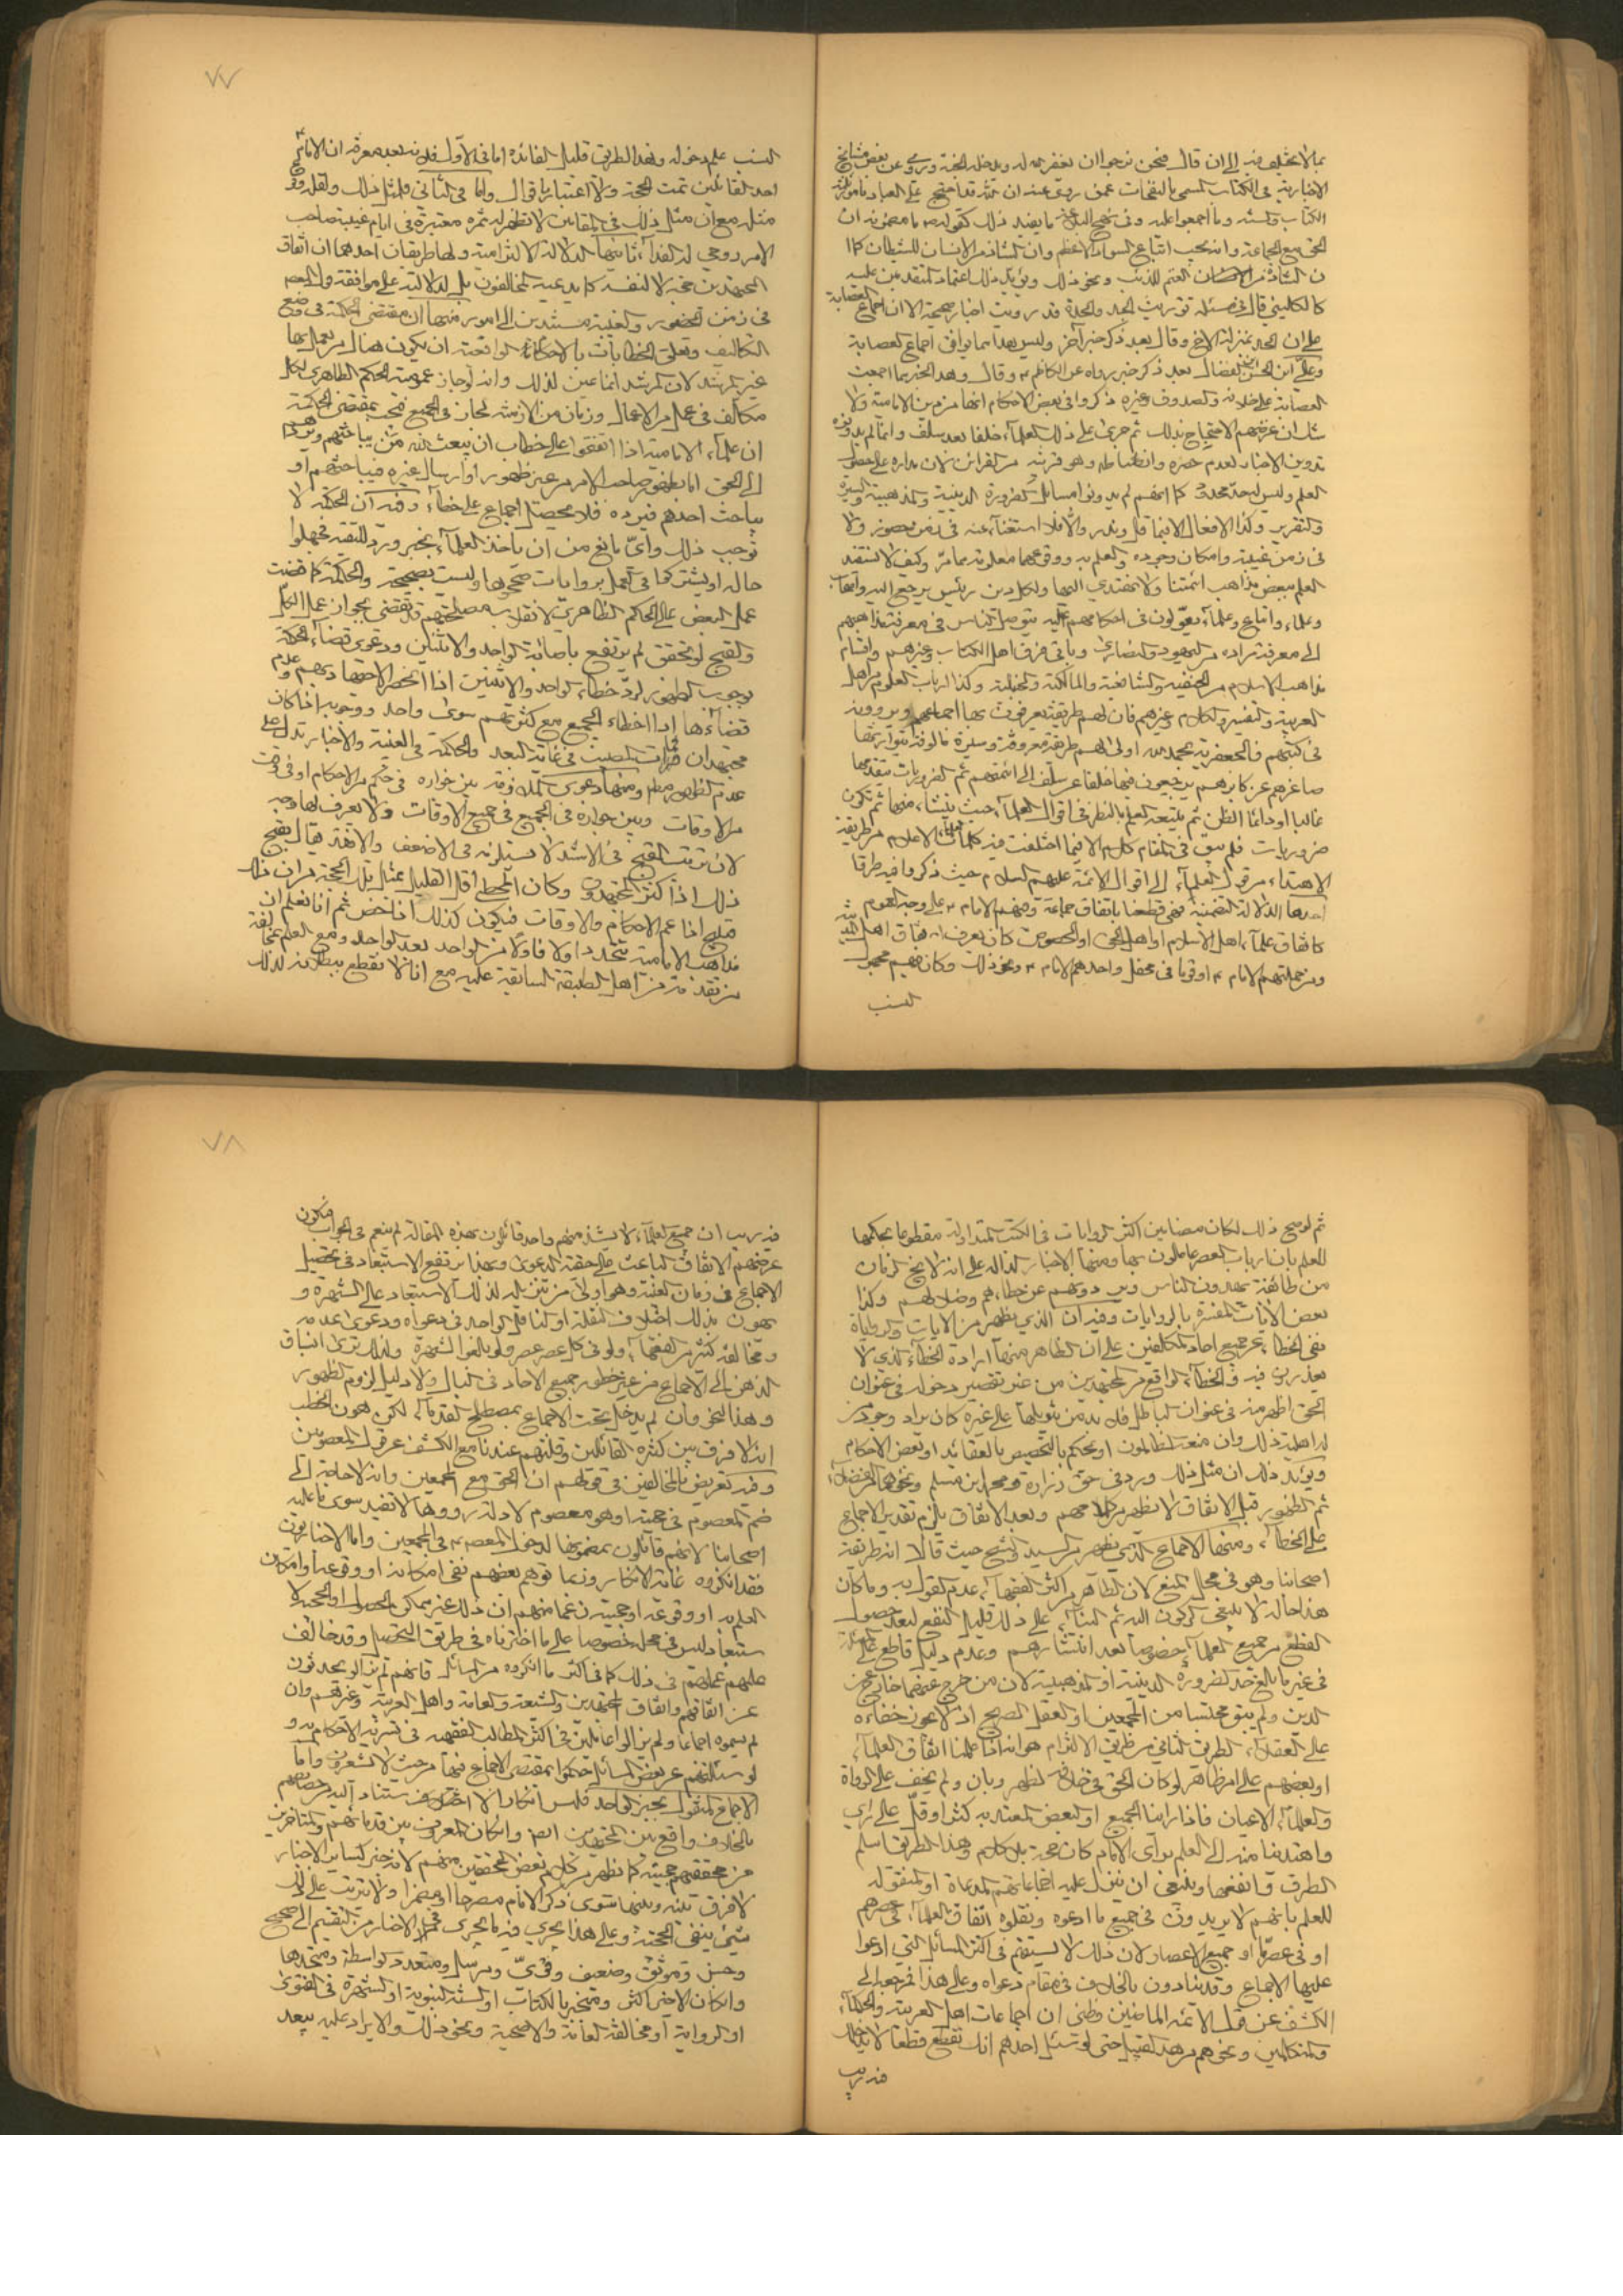 بما لا يختلف فيه الى ان قال فنحن نرجوا ان يغفر الله له ويدخله الجنة وروى عن بعض مشايخ
الاخبارية في الكتاب المسمى بالنفحات عمن روى عنه ان لله تعالى حجج على العباد بامور ثلثة
الكتاب والسنة وما اجمعوا عليه وفي نهج البلاغة ما يفيد ذلك كقوله ما مضمونه ان
الحق مع الجماعة وانه يجب اتباع السواد الاعظم وان الشاذ من الانسان للشيطان كما
ان الشاذة من الغنم للذئب ونحو ذلك ويؤيد ذلك اعتماد المتقدمين عليه
كالكليني قال في مسئلة توريث الجد والجدة قد رويت اخبار صحيحة الا ان اجماع العصابة
على ان الجد بمنزلة الاخ وقال بعد ذكر خبر آخر وليس هذا مما يوافق اجماع العصابة
وعلي ابن الحسن الفضال بعد ذكر خبر رواه عن الكاظم وقال وهذا الخبر مما اجمعت
العصابة على خلافه والصدوق وغيره ذكروا في بعض الاحكام انها من دين الامامية ولا
شك ان غرضهم الاحتجاج بذلك ثم جرى على ذلك العلماء خلفا بعد سلف وانما لم يدونوه
تدوين الاخبار لعدم حصره وانضباطه وهو قرينة من القرائن لان مداره على حصول
العلم وليس له حد محدود كما انهم لم يدونوا مسائل الضرورة الدينية والمذهبية والسيرة
والتقرير وكذا الافعال الا فيما قل وندر والا فلا استغناء عنه في زمن حضور ولا
في زمن غيبة وامكان وجوده والعلم به ووقوعهما معلومة مما مر وكيف لا نستفيد
العلم ببعض مذاهب ائمتنا ولا نهتدي اليها ولكل دين رئيس يرجع اليه واتباعه
وعلماء واتباع وعلماء يعولون في احكامهم عليه يتوصل الناس في معرفة مذاهبهم
الى معرفة مراده من اليهود والنصارى وباقي فرق اهل الكتاب وغيرهم واقسام
مذاهب الاسلام من الحنفية والشافعية والمالكية والحنبلية وكذا ارباب العلوم من اهل
العربية والتفسير والكلام وغيرهم فان لهم طريقة يعرفون بها اجماعهم ويروونه
في كتبهم فالجعفرية بحمد الله اولى لهم طريقة معروفة وسيرة مالوفة يتوارثها
صاغرهم عن كابرهم يرجعون فيها خلفا عن سلف الى ائمتهم ثم الضروريات يتقدمها
غالبا او دائما الظن ثم يتبعه العلم بالنظر في اقوال العلماء حيث ينشاء منها ثم تكون
ضروريات فلم يبق في المقام كلام الا فيما اختلفت فيه كلمات العلماء الاعلام من طريقة
الاهتداء من قول العلماء الى اقوال الائمة عليهم السلام حيث ذكروا فيه طرقا
احدها الدلالة التضمنية فهي قطعنا باتفاق جماعة ومنهم الامام على وجه العموم
كاتفاق علماء اهل الاسلام او اهل الحق او الخصوص كان يعرف اتفاق اهل المدينة
ومن جملتهم الامام او قوما في محفل واحدهم الامام ونحو ذلك وكان فيهم مجهول
النسب
٧٧
النسب علم دخوله وهذا الطريق قليل الفائدة اما في الاول فلانه بعد معرفة ان الامام
احد القائلين تمت الحجة ولا اعتبار باقوال واما في الثاني فلمثل ذلك ولقلة وقوع
مثله مع ان مثل ذلك في المقامين لا تظهر له ثمرة معتبرة في ايام غيبة صاحب
الامر روحي له الفداء ثانيها الدلالة الالتزامية ولها طريقان احدهما ان اتفاق
المجتهدين حجة لا لنفسه كما يدعيه المخالفون بل لدلالته على موافقة المعصوم
في زمن الحضور والغيبة مستندين الى امور منها ان مقتضى الحكمة في وضع
التكاليف وتعلق الخطابات بالاحكام الواقعية ان يكون هناك من يعمل بها
غير المرشد لان المرشد انما عين لذلك وانه لو جاز عمومية الحكم الظاهري لكل
مكلف في عمل من الاعمال وزمان من الازمنة لجاز في الجميع فتجب بمقتضى الحكمة
ان علماء الامامية اذا اتفقوا على خطاب ان يبعث الله من يباحثهم ويردهم
الى الحق اما بظهور صاحب الامر من غير ظهور او ارسال غيره فيباحثهم او
يباحث احدهم فيرده فلا يحصل اجماع على خطاء وفيه ان الحكمة لا
توجب ذلك واي مانع من ان ياخذ العلماء بخبر ورد للتقية فجهلوا
حاله او يشتركوا في العمل بروايات صححوها وليست بصحيحة والحكمة كما قضت
عمل البعض على الحكم الظاهري لانقلاب مصلحتهم قد تقضي بجواز عمل الكل
والقبح لو تحقق لم يرتفع باصابة الواحد والاثنين ودعوى قضاء الحكمة
بوجوب الظهور لرد خطاء الواحد والاثنين اذا انحصر الاجتهاد بهم وعدم
قضائها اذا اخطاء الجميع مع كثرتهم سوى واحد ووجوبه اذا كان
مجتهدان فمات المصيب في غاية البعد والحكمة في الغيبة والاخبار تدل على
عدم الظهور مطلقا ومنها دعوى الملازمة بين جوازه في حكم من الاحكام او في وقت
من الاوقات وبين جوازه في الجميع في جميع الاوقات ولا يعرف لها وجه
لان ترتب القبح في الاشد لا يستلزمه في الاضعف والا فقد يقال بقبح
ذلك اذا كثر المجتهدون وكان المخطئ اقل القليل بمثل تلك الحجة من ان ذلك
قبيح اذا عم الاحكام والاوقات فيكون كذلك اذا خص ثم انا نعلم ان
مذاهب الامامية تتجدد اولا فاولا من الواحد بعد الواحد ومع العلم بمخالفة
من تقدمه من اهل الطبقة السابقة عليه مع انا لا نقطع ببطلانه لذلك
ثم لو صح ذلك لكان مضامين اكثر الروايات في الكتب المتداولة مقطوعا بحكمها
للعلم بان ارباب العصر عاملون بها ومنها الاخبار الدالة على انه لا يخ الزمان
من طائفة يهدون الناس ويردونهم عن خطائهم وضلالهم وكذا
بعض الايات المفسرة بالروايات وفيه ان الذي يظهر من الايات والروايات
نفي الخطاء عن جميع احاد المكلفين على ان الظاهر منها ارادة الخطاء الذي لا
يعذرون فيه والخطاء الواقع من المجتهدين من غير تقصير دخوله في عنوان
الحق اظهر منه في عنوان الباطل فلا بد من تنويلها على غيره كان يراد وجود من
له اهلية ذلك وان منعه الظالمون او يحكم بالتخصيص بالعقائد او بعض الاحكام
ويؤيد ذلك ان مثل ذلك ورد في حق زرارة ومحمد ابن مسلم ونحوهما من الفضلاء
ثم الظهور قبل الاتفاق لا يظهر من كلامهم وبعد الاتفاق يلزم تقدير الاجماع
على الخطاء ومنها الاجماع الذي يظهر من السيد والشيخ حيث قالا انه طريقة
اصحابنا وهو في محل المنع لان الظاهر من اكثر الفقهاء عدم القول به وما كان
هذا حاله لا ينبغي الركون اليه ثم البناء على ذلك قليل النفع لبعد حصول
القطع من جميع العلماء خصوصا بعد انتشارهم وعدم دليل قاطع على المسئلة
في غير ما بالغ حد الضرورة الدينية او المذهبية لان من خرج عنهما خارج عن
الدين ولم يبق محتسبا من المجمعين او العقل الصريح اذ لا يمكن خفاءه
على العقلاء الطريق الثاني من طريقي الالتزام هو انه اذا علمنا اتفاق العلماء
او بعضهم على امر ظاهر لو كان الحق في خلافه لظهر وبان ولم يخف على الرواة
والعلماء الاعيان فاذا راينا الجميع او البعض المعتد به كثر او قل على راي
واهتدينا منه الى العلم براي الامام كان حجة بلا كلام وهذا الطريق اسلم
الطرق وانفعها وينبغي ان ينزل عليه اجماعاتهم المدعاة او المنقولة
للعلم بانهم لا يريدون في جميع ما ادعوه ونقلوه اتفاق العلماء في عصرهم
او في عصر ما او جميع الاعصار لان ذلك لا يستقيم في اكثر المسائل التي ادعوا
عليها الاجماع وقد ينادون بالخلاف في مقام دعواه وعلى هذا فمرجعه الى
الكشف عن قول الائمة الماضين وظني ان اجماعات اهل العربية والحكماء
والمتكلمين ونحوهم من هذا القبيل حتى لو سئل احدهم انك تقطع قطعا لا يخالطه
فيه ريب
٧٨
فيه ريب ان جميع العلماء لا يشذ منهم واحد قائلون بهذه المقالة لم ينعم في الجواب فيكون
غرضهم الاتفاق الباعث على حقية الدعوى وبهذا يرتفع الاستبعاد في تحصيل
الاجماع في زمان الغيبة وهو اولى من تنزيله لذلك الاستبعاد على الشهرة و
يهون بذلك اختلاف النقلة او الناقل الواحد في دعواه ودعوى عدمه
ومخالفة كثير من الفقهاء ولو في كل عصر عصر ولو بالغوا الشهرة ولذلك ترى انسباق
الذهن الى الاجماع من غير خطور جميع الاحاد في البال ولا دليل لزوم الظهور
وهذا النحو وان لم يدخل تحت الاجماع بمصطلح القدماء لكن يهون الخطب
انه لا فرق بين كثرة القائلين وقلتهم عندنا مع الكشف عن قول المعصومين
وفيه تعريض بالمخالفين في قولهم ان الحق مع المجمعين وانه لا حاجة الى
ضم المعصوم في حجيته او هو معصوم لادلة رووها لا تفيد سوى ما عليه
اصحابنا لانهم قائلون بمضمونها لدخول المعصوم في المجمعين واما الاخباريون
فقد انكروه غاية الانكار وربما توهم بعضهم نفي امكانه او وقوعه او امكان
العلم به او وقوعه او حجيته زعما منهم ان ذلك غير ممكن الحصول او الحجية لا
ستبعاد ليس في محله خصوصا على ما اخترناه في طريق التحصيل وقد خالف
عليهم عملهم في ذلك كما في اكثر ما انكروه من المسائل فانهم لم يزالوا يحدثون
عن اتفاقهم واتفاق المجتهدين والشيعة والعامة واهل العربية وغيرهم وان
لم يسموه اجماعا ولم يزالوا عاملين في اكثر المطالب الفقهية في تسرية الاحكام به و
لو سئلتهم عن بعض المسائل حكموا بمقتضى الاجماع فيها من حيث لا يشعرون واما
الاجماع المنقول بخبر الواحد فليس انكاره الاختلاف يستناد اليه من خصائصهم
بالخلاف واقع بين المجتهدين ايضا وان كان المعروف بين قدمائهم والمتاخرين
من محققيهم حجيته كما يظهر من كلام بعض المحققين منهم لانه خبر كسائر الاخبار
لا فرق بينه وبينها سوى ذكر الامام مصرحا او مضمرا ولا يترتب على ذلك
شيء ينفي الحجية وعلى هذا يجري فيه ما يجري في الاخبار من التقسيم الى صحيح
وحسن وموثق وضعيف وقوي ومرسل ومتعدد الواسطة ومتحدها
وان كان الاخير اكثر ومنجبر بالكتاب او السنة النبوية او الشهرة في الفتوى
او الرواية او مخالفة العامة والاصحية ونحو ذلك والايراد عليه ببعد